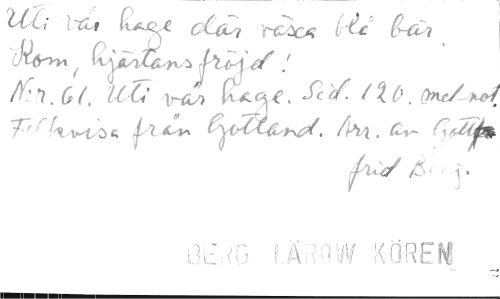 Uti vår hage där växa blå bär.
Kom, hjärtans fröjd!
N:r. 61. Uti vår hage. Sid. 120. med not.
Folkvisa från Gotland. Arr. av Gott-
frid Berg.
BERG LÄROW KÖREN